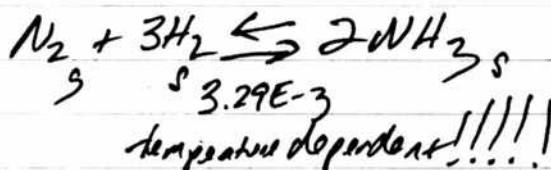 N₂ + 3H₂ ⇌ 2NH₃
g s s
3.29E-3
temperature dependent!!!!!